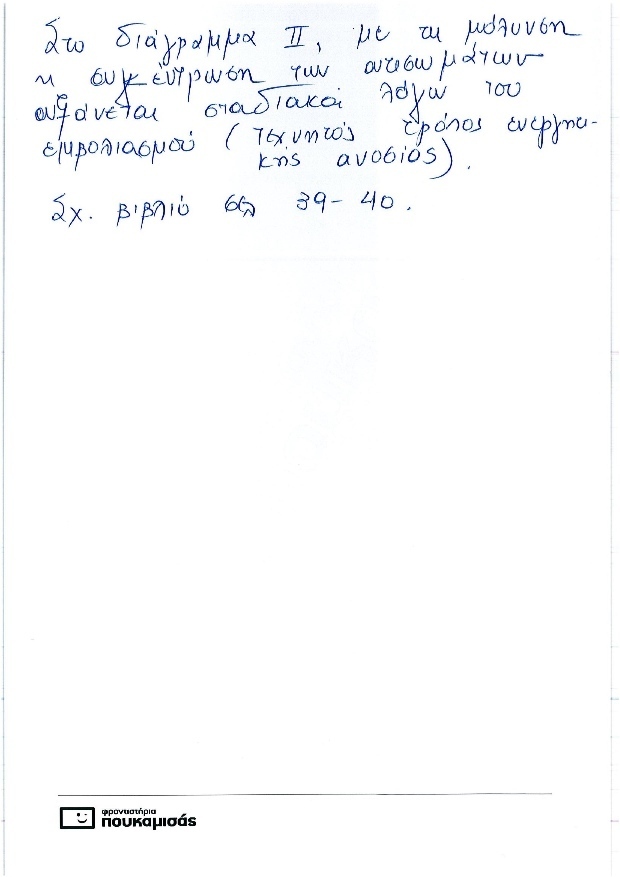 Στο διάγραμμα ΙΙ, με τη μόλυνση
η συγκέντρωση των αντισωμάτων
αυξάνεται σταδιακά λόγω του
εμβολιασμού (τεχνητός τρόπος ενεργητι-
κής ανοσίας).
Σχ. βιβλίο σελ 39-40.
φροντιστήρια
πουκαμισάς